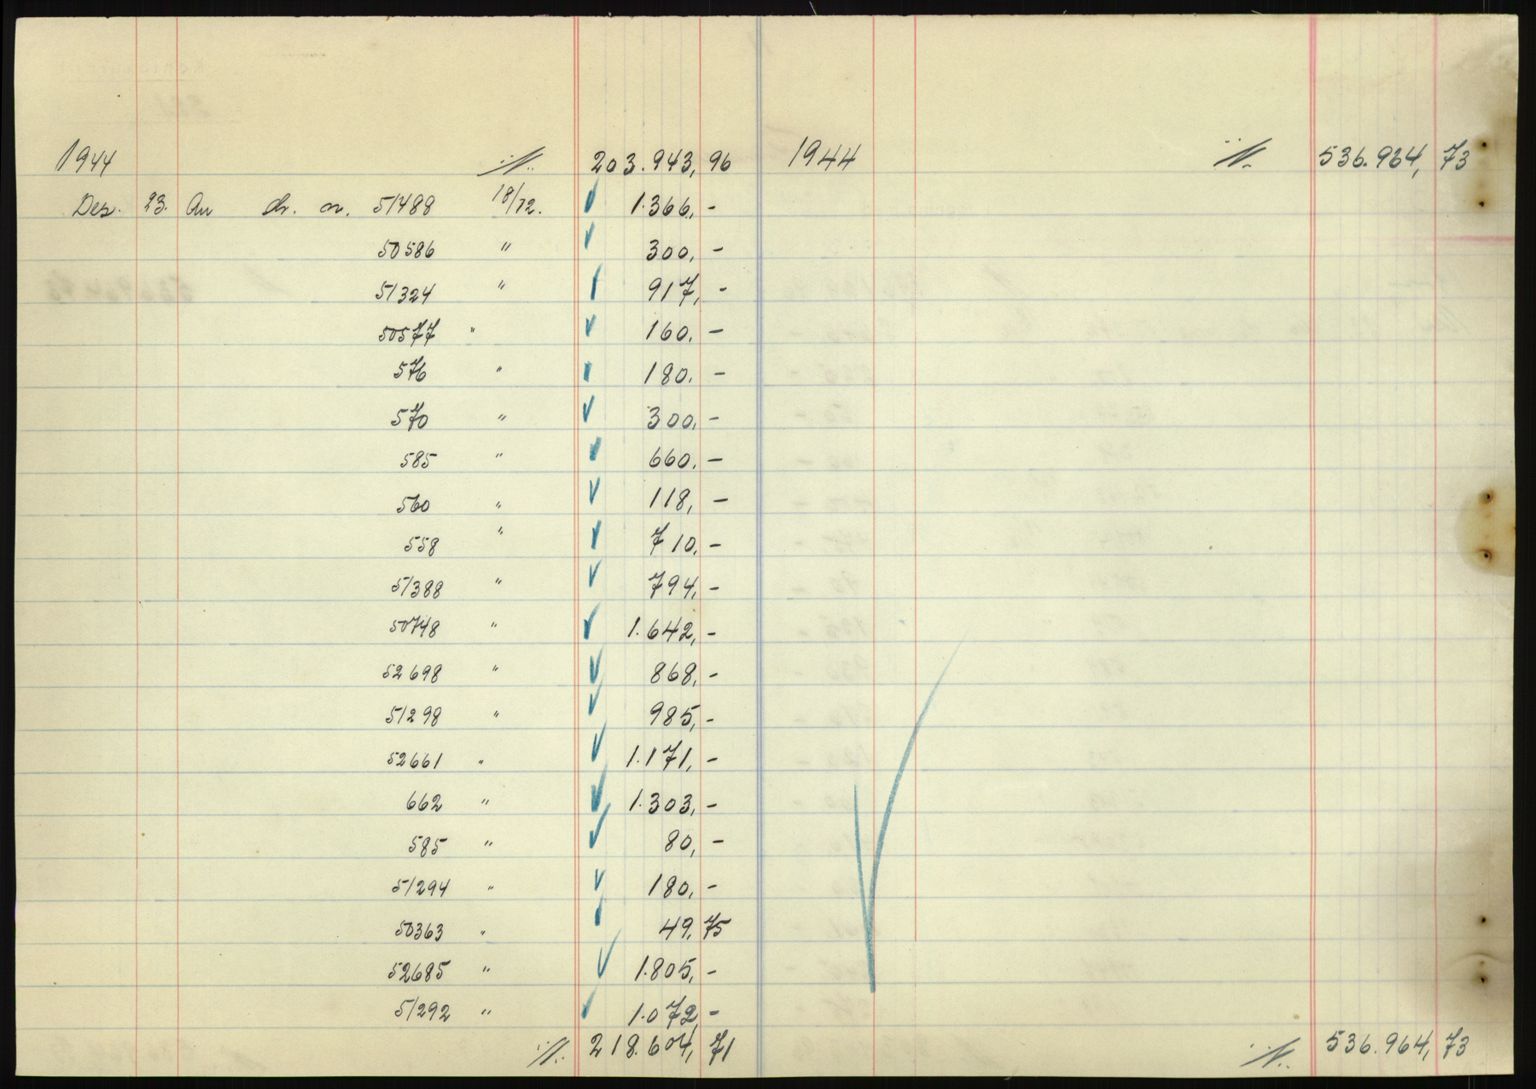 1944 203.943,96 1944 536.964,73
Dez. 23. An 51488 18/12. 1.366,-
50586 " 300,-
51324 " 917,-
50577 " 160,-
576 " 180,-
570 " 300,-
585 " 660,-
560 " 118,-
558 " 710,-
51388 " 794,-
50748 " 1.642,-
52698 " 868,-
51298 " 985,-
52661 " 1.171,-
662 " 1.303,-
585 " 80,-
51294 " 180,-
50363 " 49,75
52685 " 1.805,-
51292 " 1.072,-
218.604,71 536.964,73